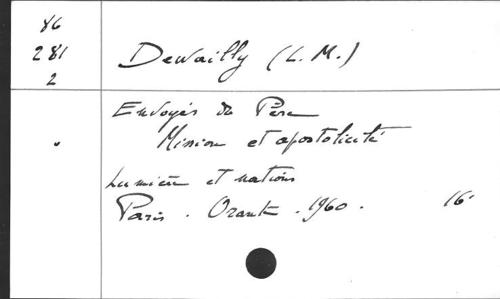 86
281
2
Dewailly (L. M.)
Envoyés du Père
Mission et apostolicité
"
Lumière et nations
Paris. Orante. 1960. 16°